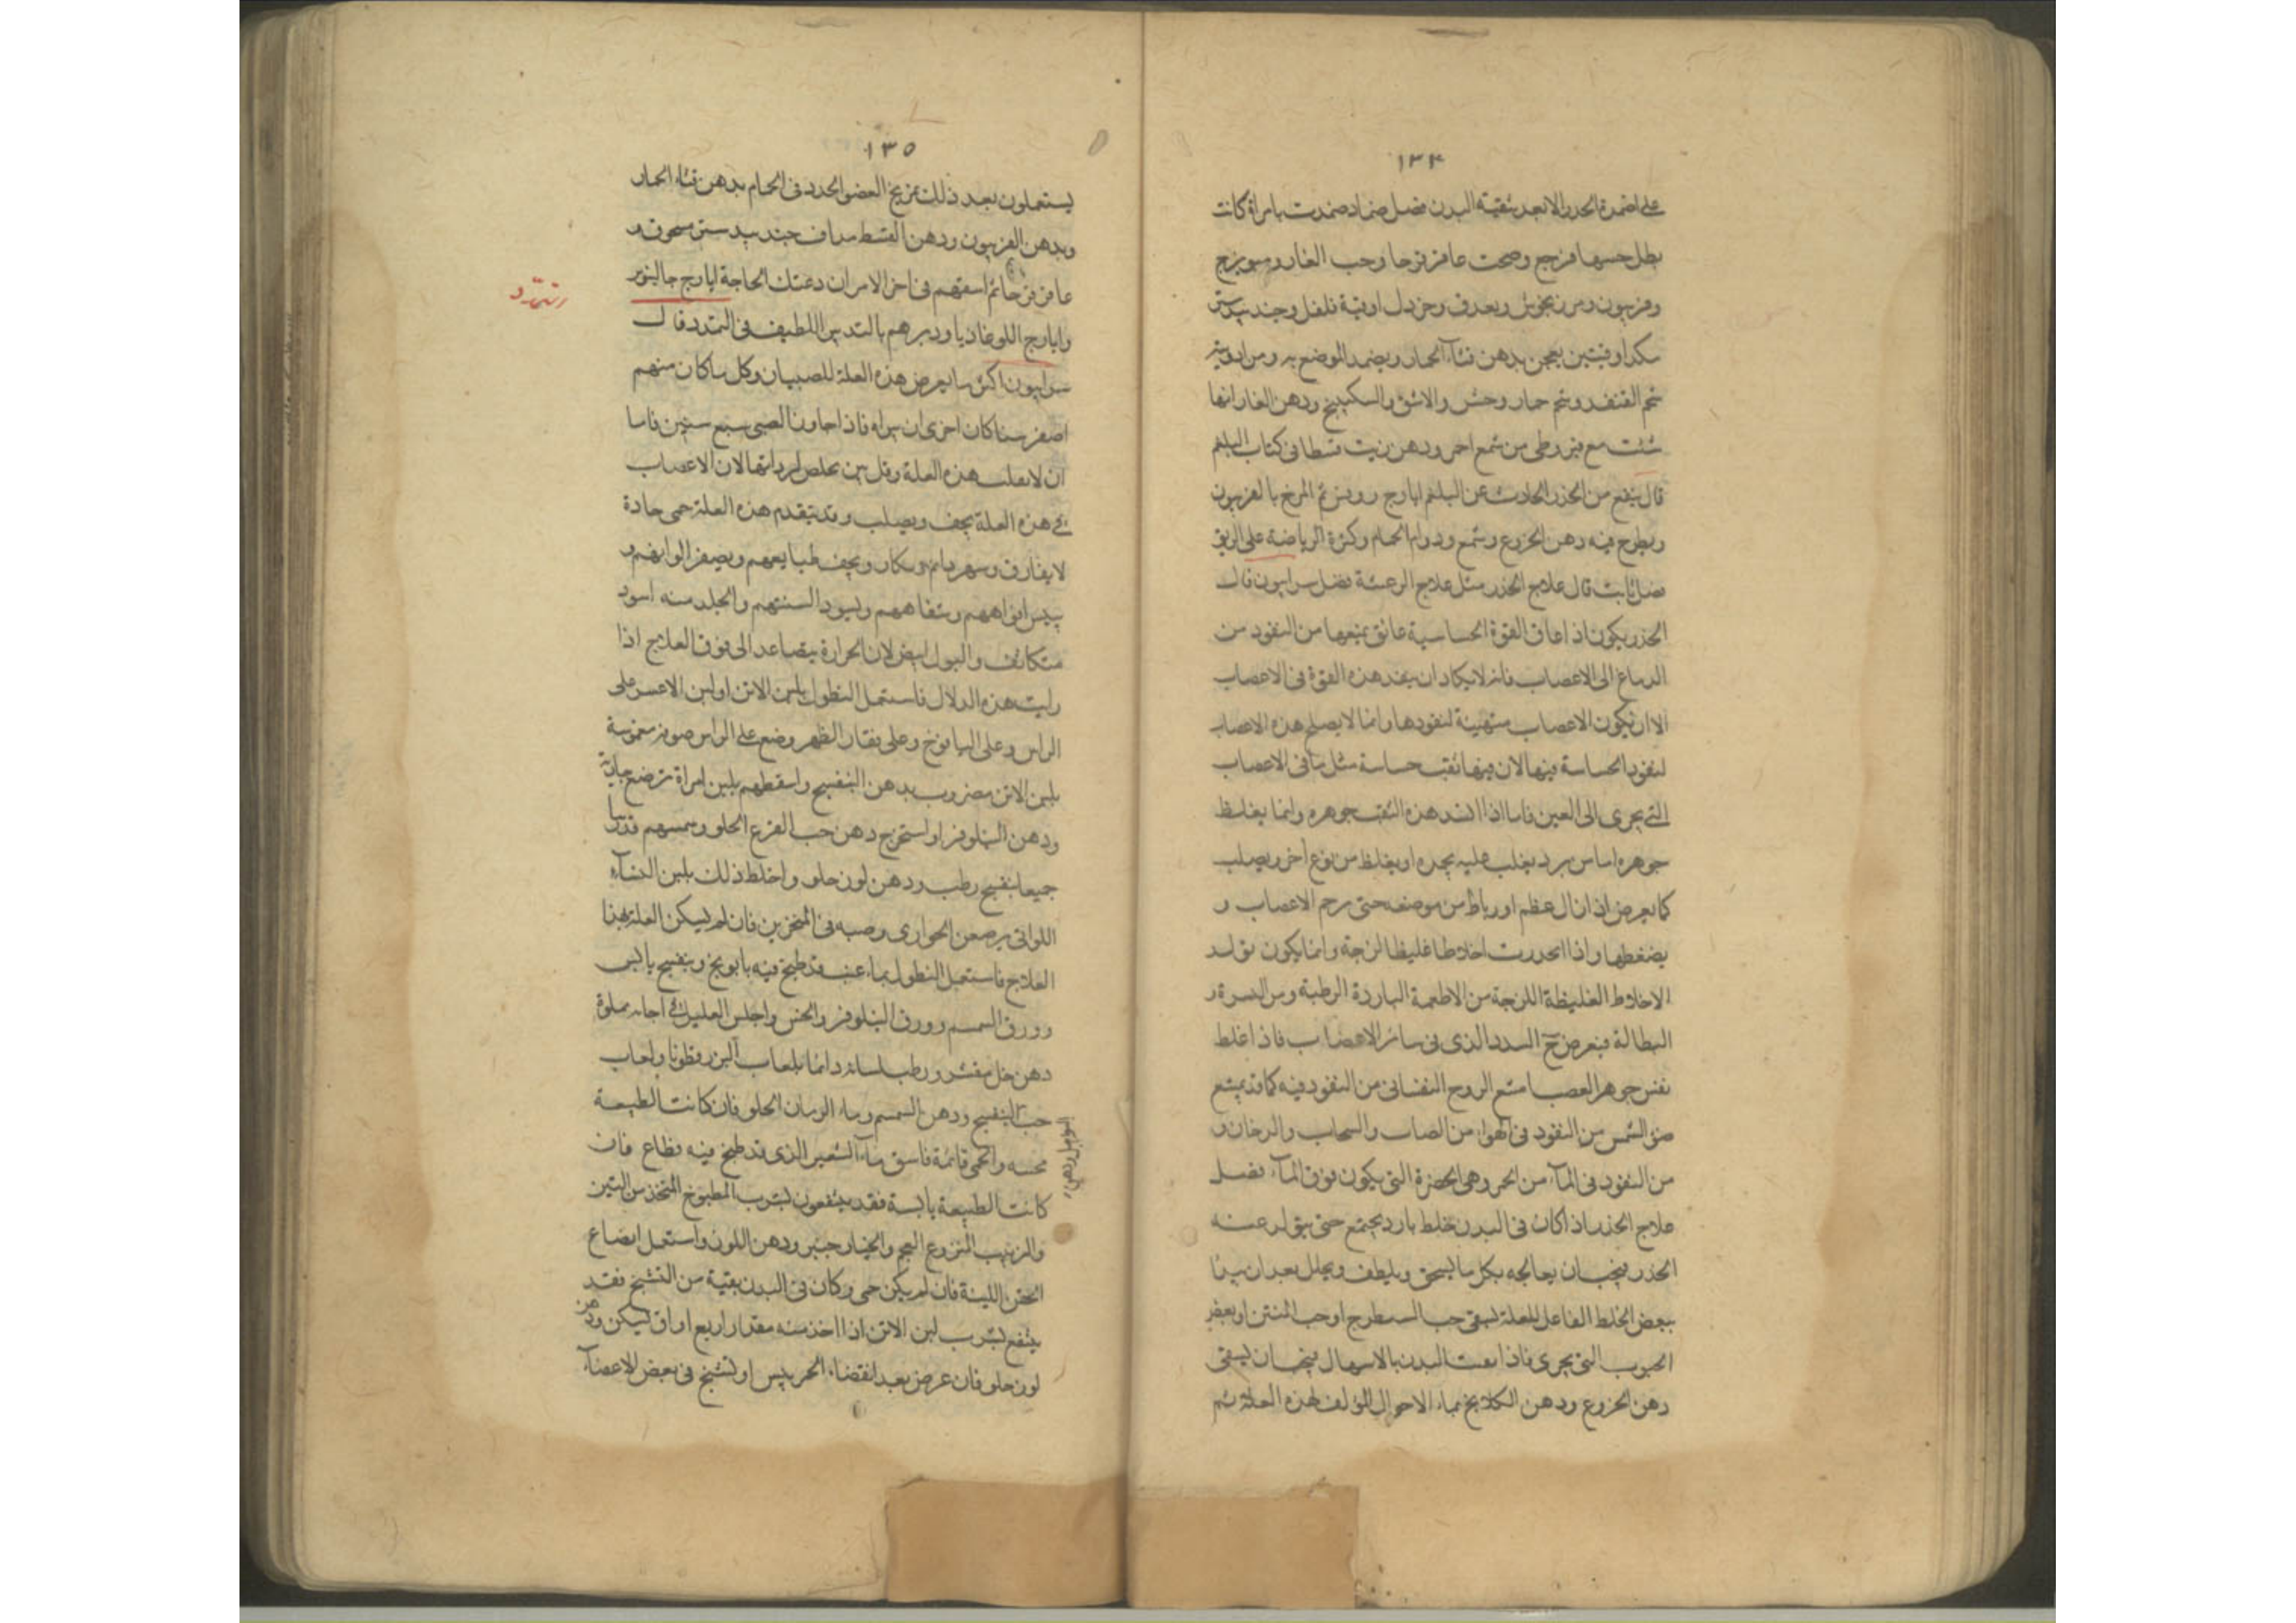 ١٣٤
على اضمدة الخدر الا بعد تنقية البدن فصل ضماد ضمدت به امراة كانت
بطل حسها فرجع وصحت عاقرقرحا وحب الغار وميويزج
وفربيون ومرزنجوش وبعرق وخردل اوقية فلفل وجندبيدستر
سكد اوقيتين يعجن بدهن قثاء الحمار ويضمد الموضع به ومن ادويته
شحم القنفد وشحم حمار وحش والاشق والسكبينج ودهن الغار ايها
شئت مع قيروطى من شمع احمر ودهن زيت قسطا فى كتاب البلغم
قال ينفع من الخدر الحادث عن البلغم ايارج روفس ثم المرخ بالفربيون
ويطرح فيه دهن الخروع وشمع ودوام الحمام وكثرة الرياضة على الريق
فصل ثابت قال علاج الخدر مثل علاج الرعشة فصل سرابيون قال
الخدر يكون اذا عاق القوة الحساسية عائق يمنعها من النفود من
الدماغ الى الاعصاب فانه لا يكاد ان ينفد هذه القوة فى الاعصاب
الا ان يكون الاعصاب متهيئة لنفودها وانما لا يصلح هذه الاعصاب
لنفود الحساسة فيها لان فيها ثقب حساسة مثل ما فى الاعصاب
التى يجرى الى العين فاما اذا انسد هذه الثقب جوهره وانما يغلظ
جوهره اما من برد يغلب عليه يجمده او يغلظ من نوع اخر ويصلب
كما يعرض اذ ازال عظم او رباط من موضعه حتى يزحم الاعصاب و
يضغطها واذا انحدرت اخلاطا غليظا لزجة وانما يكون تولد
الاخلاط الغليظة اللزجة من الاطعمة الباردة الرطبة ومن
البطالة فيعرض ح السدد الذى فى سائر الاعضاب فاذا غلط
نفس جوهر العصب امتنع الروح النفسانى من النفود فيه كما قد يمتنع
ضو الشمس من النفود فى الهواء من الضباب والسحاب والدخان و
من النفود فى الماء من وهى الخضرة التى يكون فوق الماء فصل
علاج الخدر اذا كان فى البدن خلط بارد يجتمع حتى يتولد عنه
الخدر فيجب ان يعالجه بكل ما يسخن ويلطف ويحلل بعد ان يبدا
ببعض الخلط الفاعل للعلة يسقى حب السيطرج او حب المنتن او بعض
الحبوب التى يجرى فاذا نقيت البدن بالاسهال فيجب ان يسقى
دهن الخروع ودهن الكلاكلانج بماء الاصول المؤلف لهذه العلة ثم
١٣٥
يستعملون بعد ذلك تمريخ العضو الخدر فى الحمام بدهن قثاء الحمار
وبدهن الفربيون ودهن القسط مداف جندبيدستر مسحوق و
عاقرقرحا ثم اسقهم فى اخر الامر ان دعتك الحاجة ايارج جالينوس
وايارج اللوغاديا ودبرهم بالتدبير اللطيف فى التمدد قال
التمدد
سرابيون اكثر ما يعرض هذه العلة للصبيان وكل ما كان منهم
اصغر سنا كان احرى ان يبراه فاذا جاوز الصبى سبع سنين فاما
ان لا تغلب هذه العلة وقل من يخلص لرداتها لان الاعصاب
فى هذه العلة يجف ويصلب وقد يتقدم هذه العلة حمى حادة
لا يفارق وسهر دائم وبكا ويجف طبايعهم ويصفر الوانهم و
ييبس افواههم وشفاههم ويسود السنتهم والجلد منه اسود
متكاثف والبول ابيض لان الحرارة يتصاعد الى فوق العلاج اذا
رايت هذه الدلائل فاستعمل النطول بلبن الاتن او لبن الاعنز على
الراس وعلى اليافوخ وعلى فقار الظهر وضع على الراس صوفة مغموسة
بلبن الاتن مضروب بدهن البنفسج واسقطهم بلبن امراة ترضع جارية
ودهن النيلوفر او استخرج دهن حب القرع الحلو وسمسم
جميعا بنفسج رطب ودهن لوز حلو واخلط ذلك بلبن النساء
اللواتى يرضعن الجوارى وصبه فى المنخرين فان لم يسكن العلة بهذا
العلاج فاستعمل النطول بماء عذب قد طبخ فيه بابونج وبنفسج يابس
وورق السمسم وورق النيلوفر والخس واجلس العليل فى اجانة مملوة
دهن حل مفتر ورطب لسانه دائما بلعاب البزرقطونا ولعاب
حب السفرجل ودهن
حب البنفسج ودهن السمسم وماء الرمان الحلو فان كانت الطبيعة
محبسه والحمى قائمة فاسق ماء الشعير الذى قد طبخ فيه فان
كانت الطبيعة يابسة فقد ينتفعون بشرب المطبوخ المتخذ من التين
والزبيب المنزوع العجم والخيارجنبر ودهن اللوز واستعمل ايضا ع
الحقن اللينة فان لم يكن حمى وكان فى البدن بقية من التشنج فقد
ينتفع بشرب لبن الاتن اذا اخذ منه مقدار اربع اواق ليكن ودهن
لوز حلو فان عرض بعد انقضاء الحمى يبس او تشنج فى بعض الاعضاء